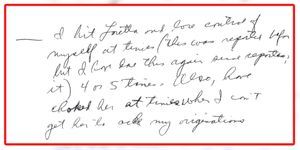 — I hit Loretta and lose control of
myself at times (this was reported before
but I have done this again since reported
it) 4 or 5 times. Also, have
choked her at times when I can't
get her to ack my originations